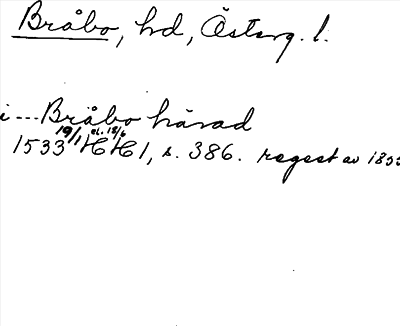 Bråbo, hd, Österg. l.
i --- Bråbo härad
1533 19/1 el. 18/6 HH 1, s. 386. regest av 1835